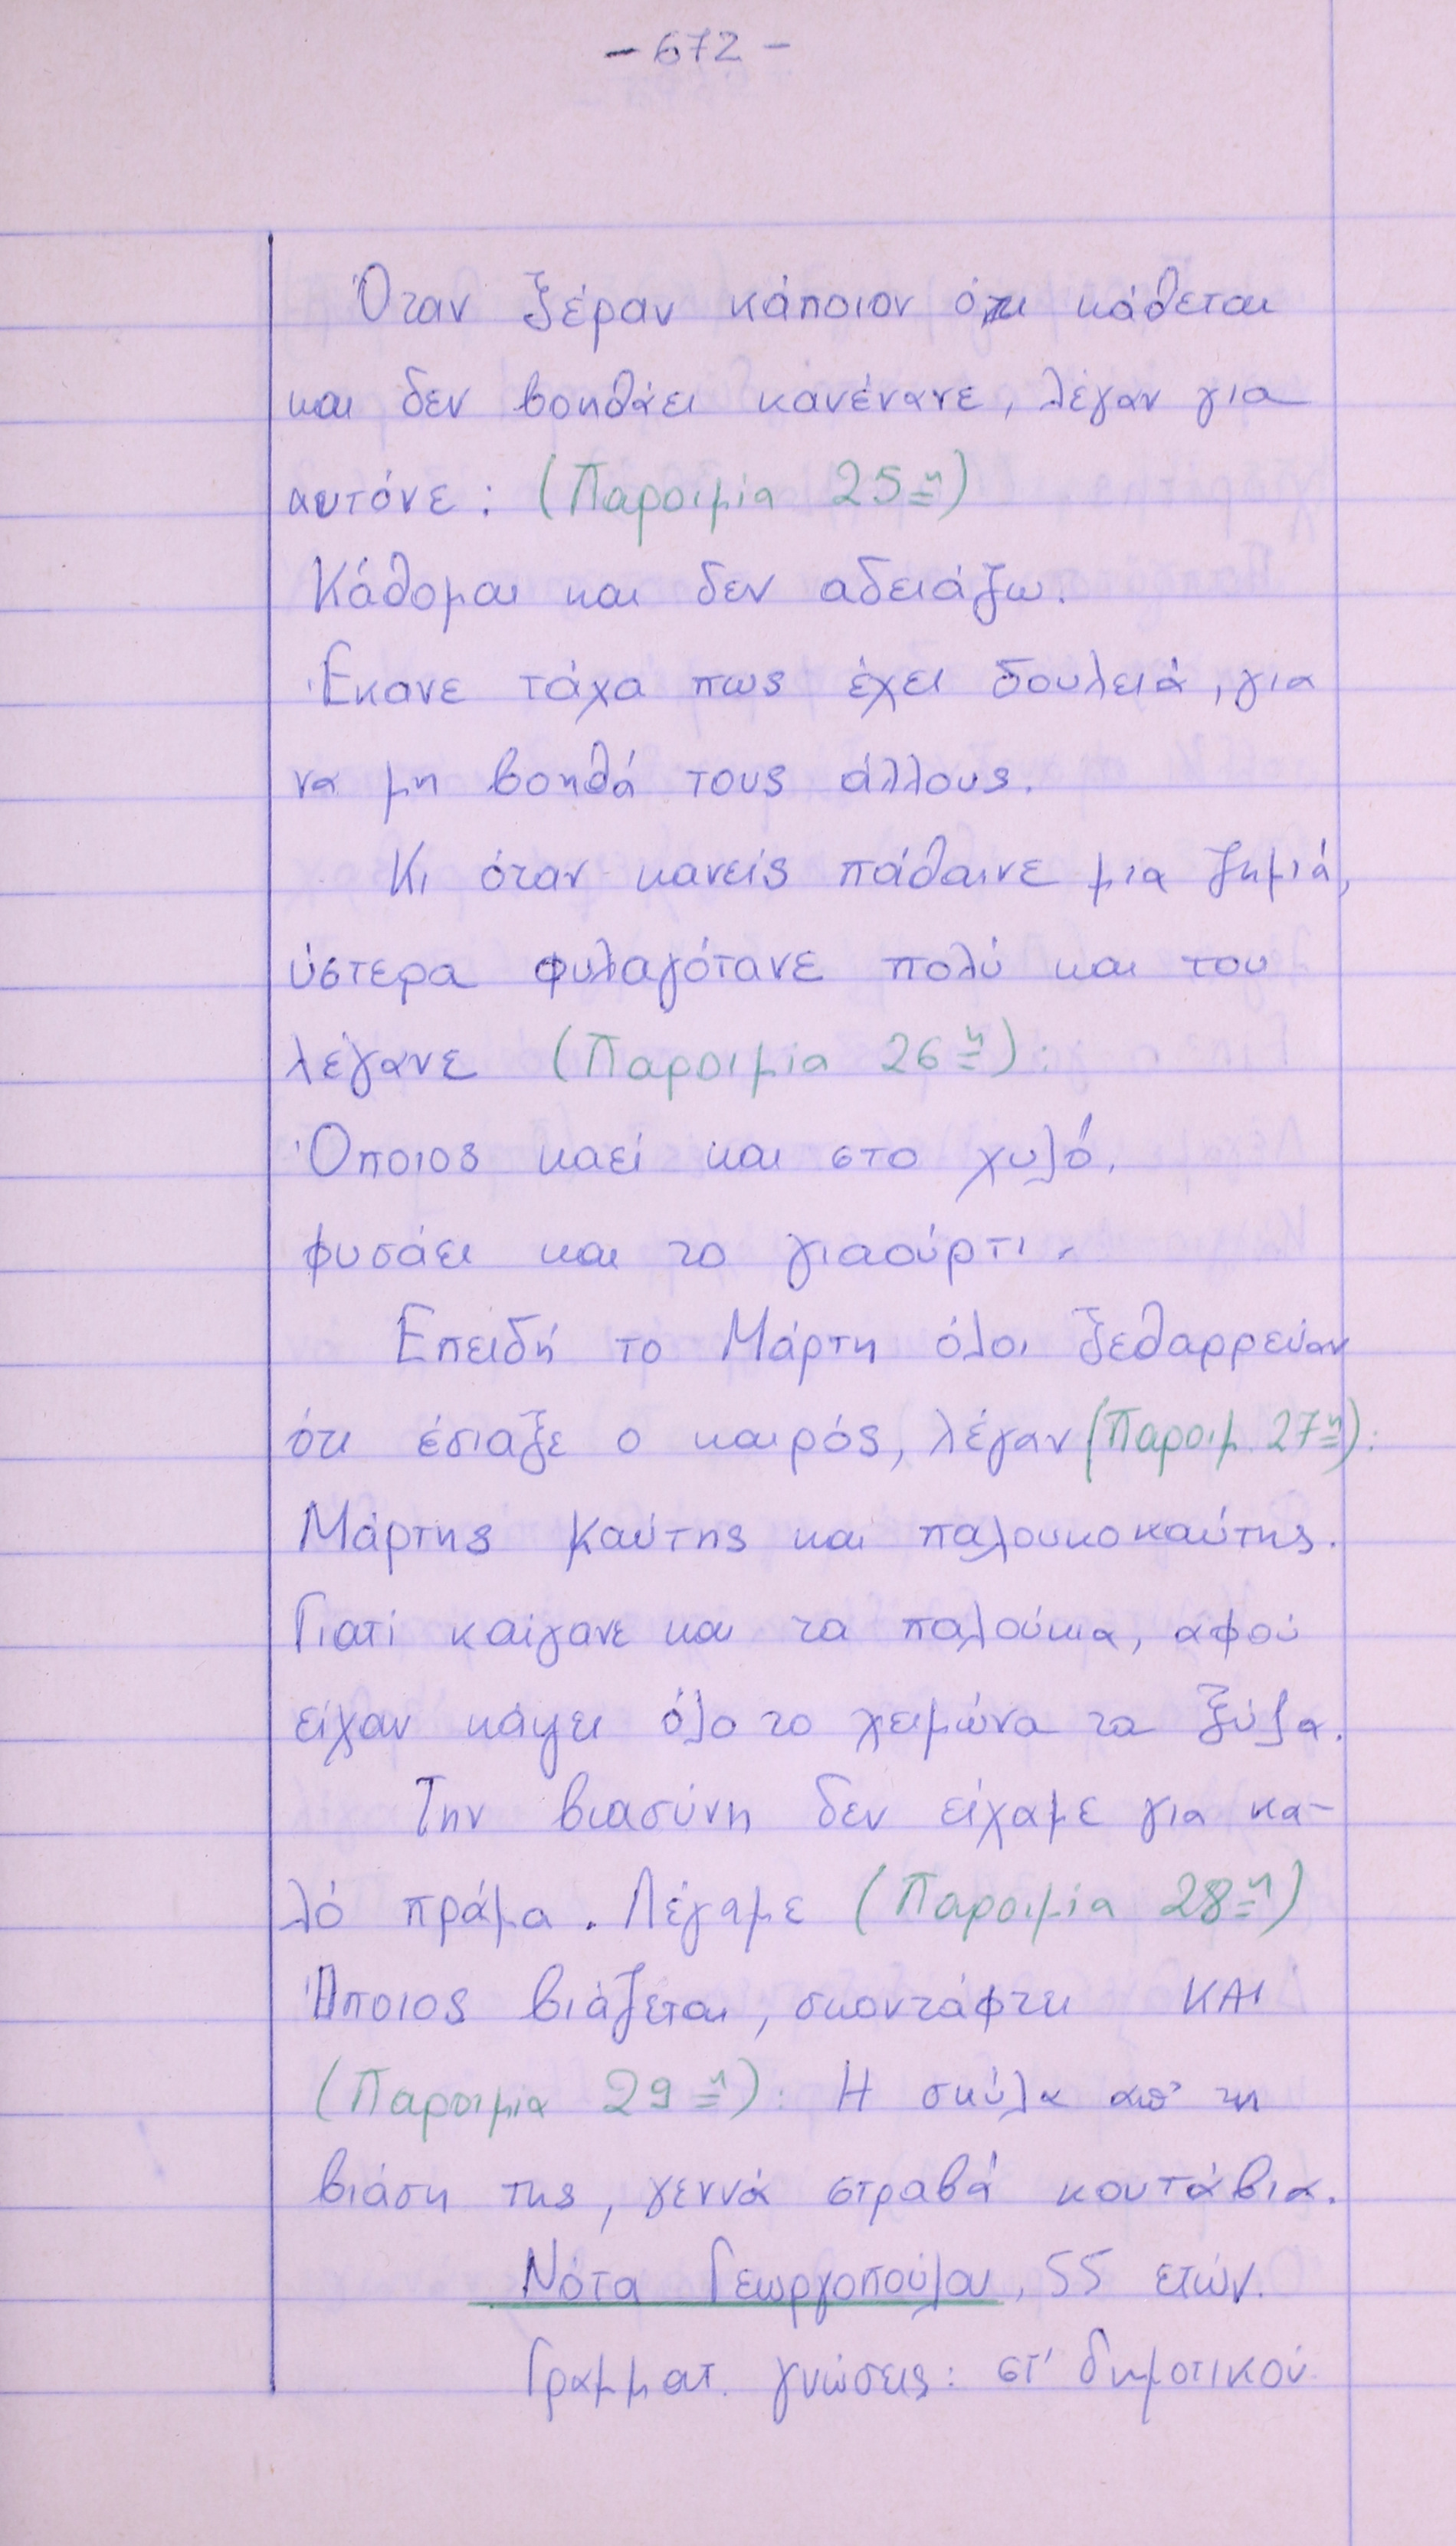 - 672 -
Όταν ξέραν κάποιον ότι κάθεται
και δεν βοηθάει κανένανε, λέγαν για
αυτόνε: (Παροιμία 25η)
Κάθομαι και δεν αδειάζω.
Έκανε τάχα πως έχει δουλειά, για
να μη βοηθά τους άλλους.
Κι όταν κανείς πάθαινε μια ζημιά,
ύστερα φυλαγότανε πολύ και του
λέγανε (Παροιμία 26η):
Όποιος καεί και στο χυλό,
φυσάει και το γιαούρτι.
Επειδή το Μάρτη όλοι ξεθαρρεύαν
ότι έσιαξε ο καιρός, λέγαν (Παροιμ. 27η):
Μάρτης καύτης και παλουκοκαύτης.
Γιατί καίγανε και τα παλούκια, αφού
είχαν κάψει όλο το χειμώνα τα ξύλα.
Την βιασύνη δεν είχαμε για κα-
λό πράμα. Λέγαμε (Παροιμία 28η)
Όποιος βιάζεται, σκοντάφτει ΚΑΙ
(Παροιμια 29η): Η σκύλα απ' τη
βιάση της, γεννά στραβά κουτάβια.
Νότα Γεωργοπούλου, 55 ετών.
Γραμματ. γνώσεις: στ' δημοτικού